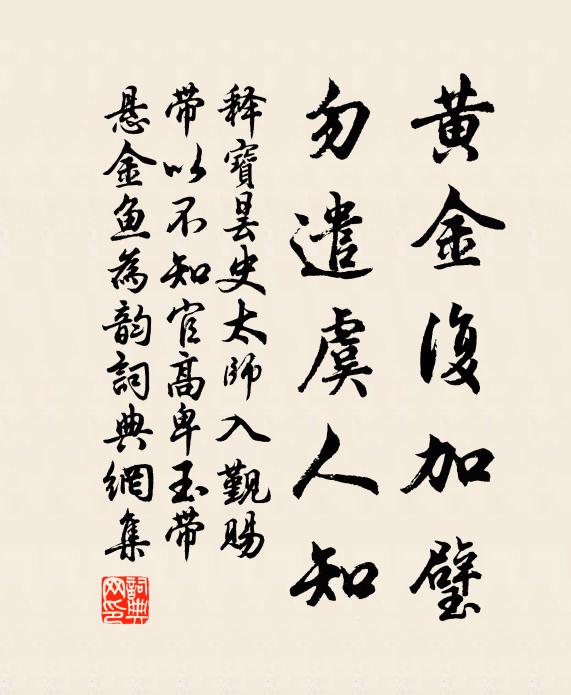 黃金復加璧
勿遣虞人知
释寶曇史太師入觐賜
带以不知官高卑玉带
悬金鱼為韵詞典網集
詞典网印